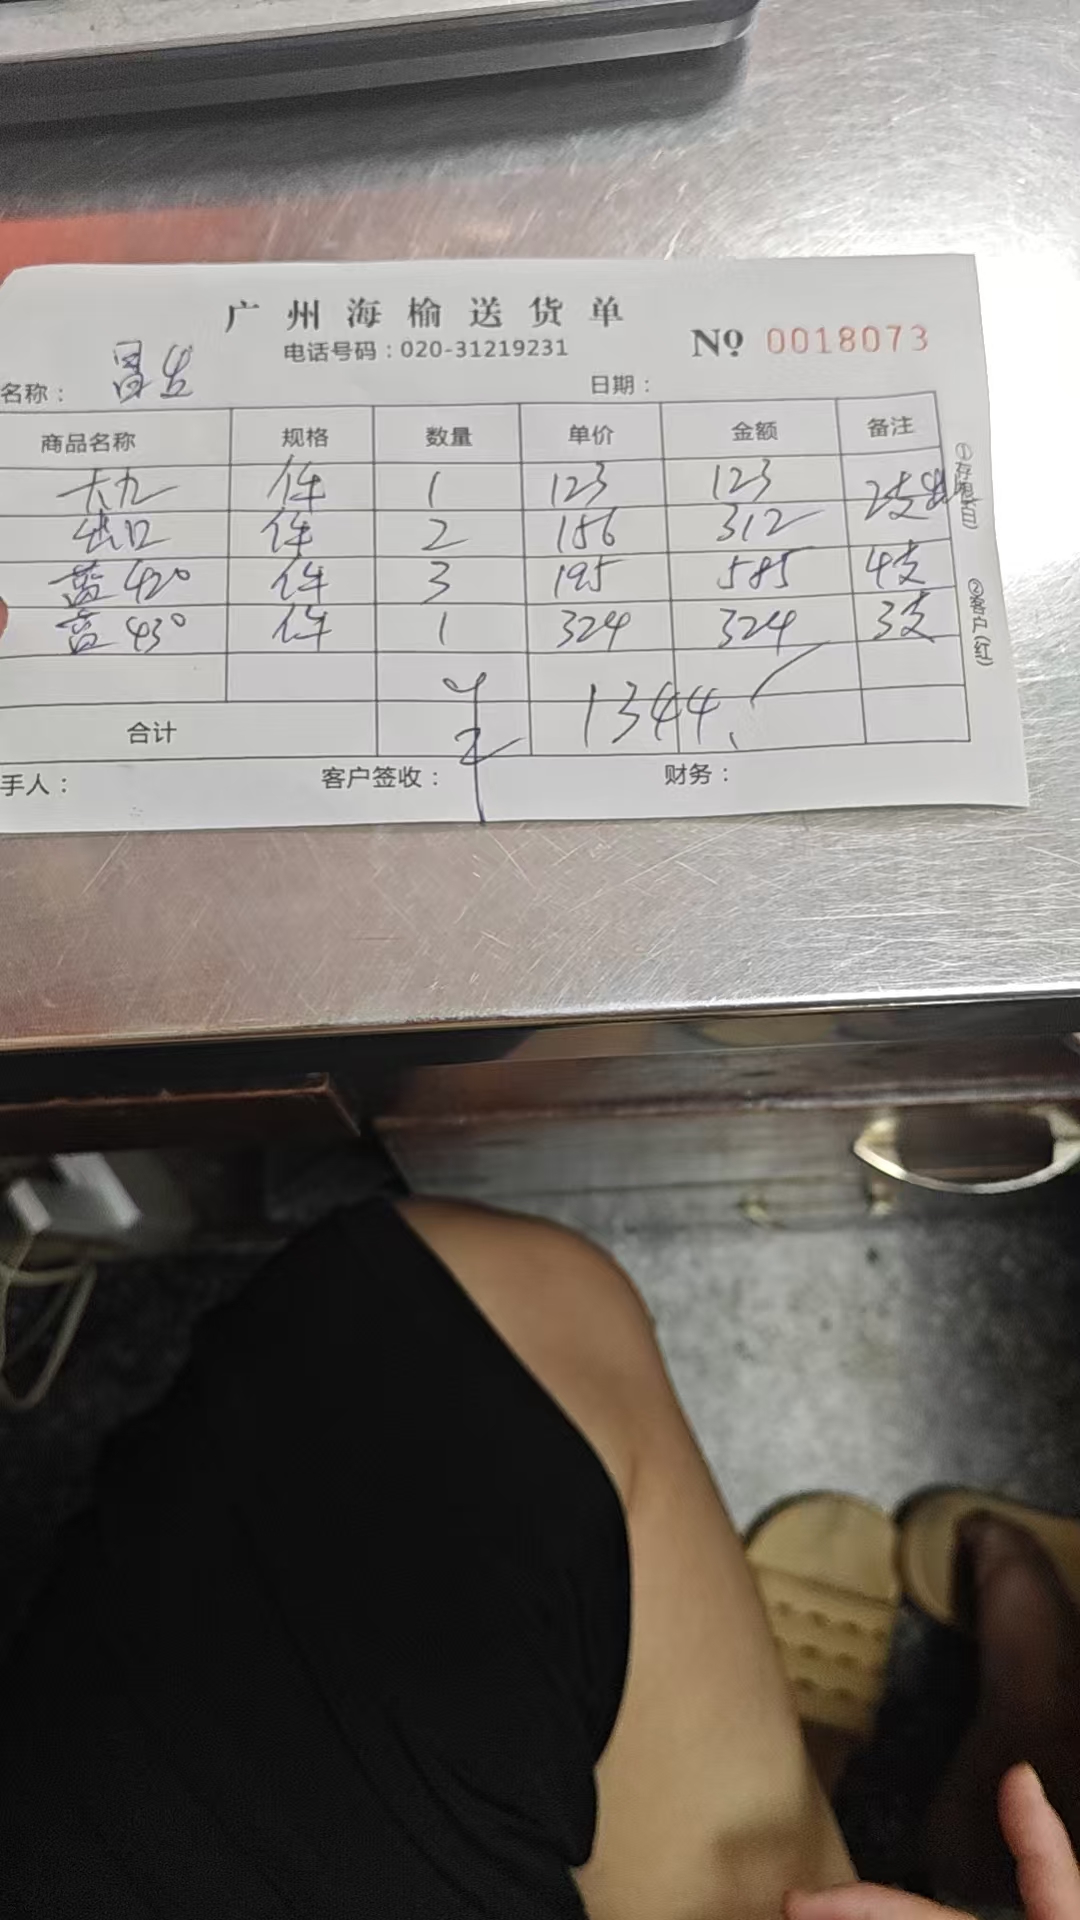 广州海榆送货单
电话号码：020-31219231 Nº 0018073
名称： 日期：
商品名称 规格 数量 单价 金额 备注
大九 件 1 123 123 2支
出口 件 2 156 312
蓝42° 件 3 195 585 4支
蓝43° 件 1 324 324 3支
合计 1344
手人： 客户签收： 财务：
①存根(白)
②客户(红)